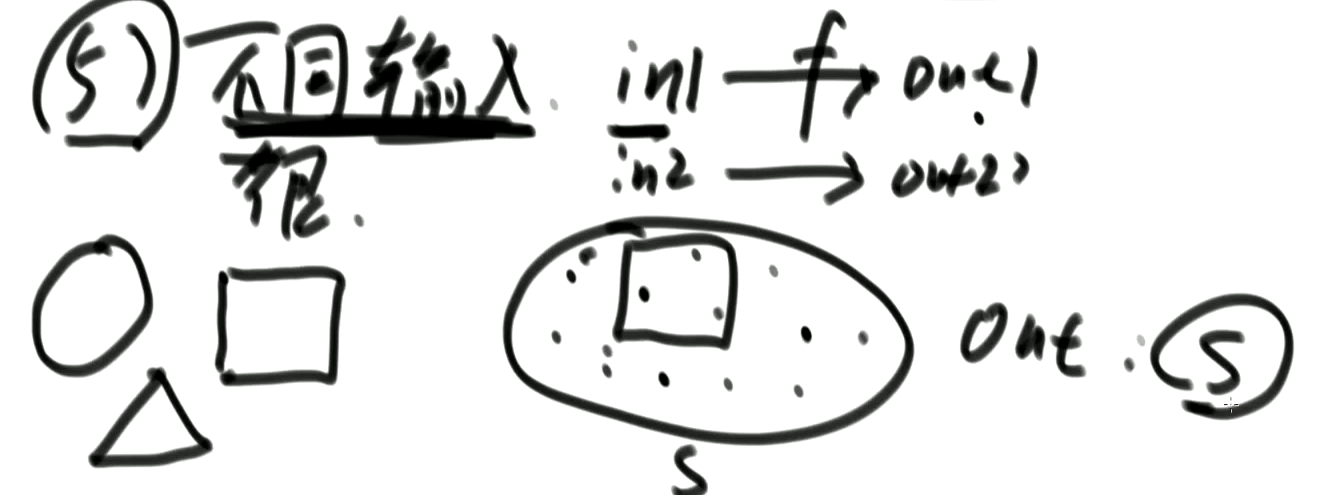 (5) 不同输入. in1 f out1
in2 out2
out : S
S